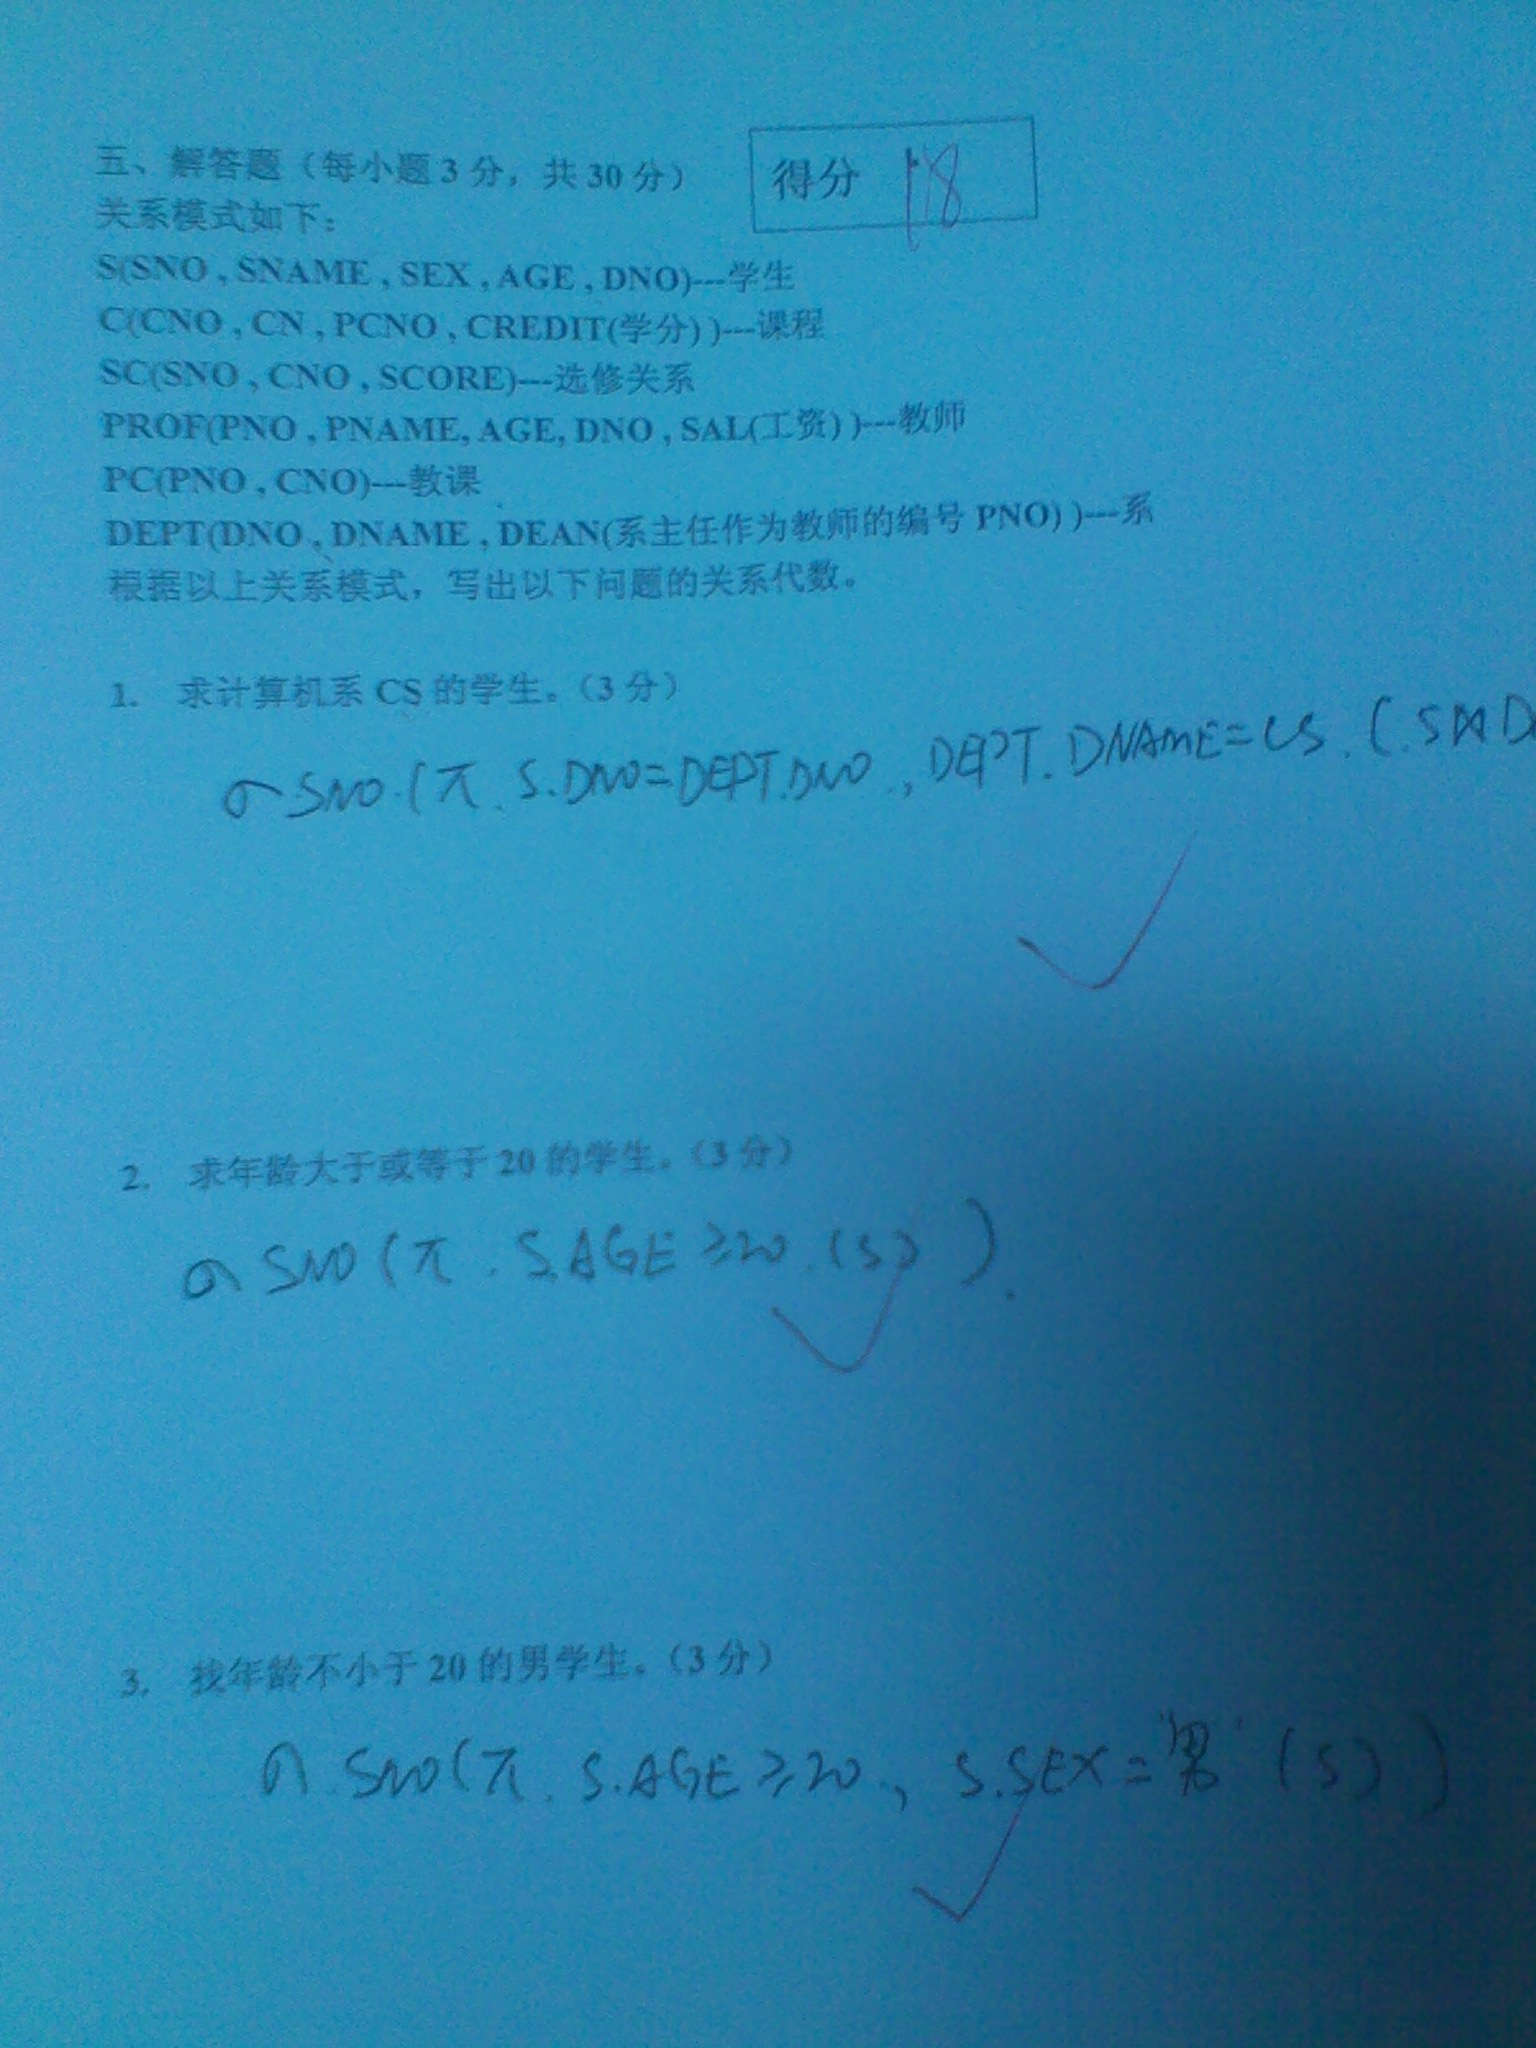 五、解答题（每小题3分，共30分） 得分 18
关系模式如下：
S(SNO , SNAME , SEX , AGE , DNO)---学生
C(CNO , CN , PCNO , CREDIT(学分) )---课程
SC(SNO , CNO , SCORE)---选修关系
PROF(PNO , PNAME, AGE, DNO , SAL(工资) )---教师
PC(PNO , CNO)---教课
DEPT(DNO , DNAME , DEAN(系主任作为教师的编号 PNO) )---系
根据以上关系模式，写出以下问题的关系代数。
1. 求计算机系 CS 的学生。（3 分）
σ SNO (π S.DNO=DEPT.DNO , DEPT.DNAME=CS (S⋈D
2. 求年龄大于或等于 20 的学生。（3 分）
σ SNO (π S.AGE≥20 (S) )
3. 找年龄不小于 20 的男学生。（3 分）
σ SNO (π S.AGE≥20 , S.SEX='男' (S) )